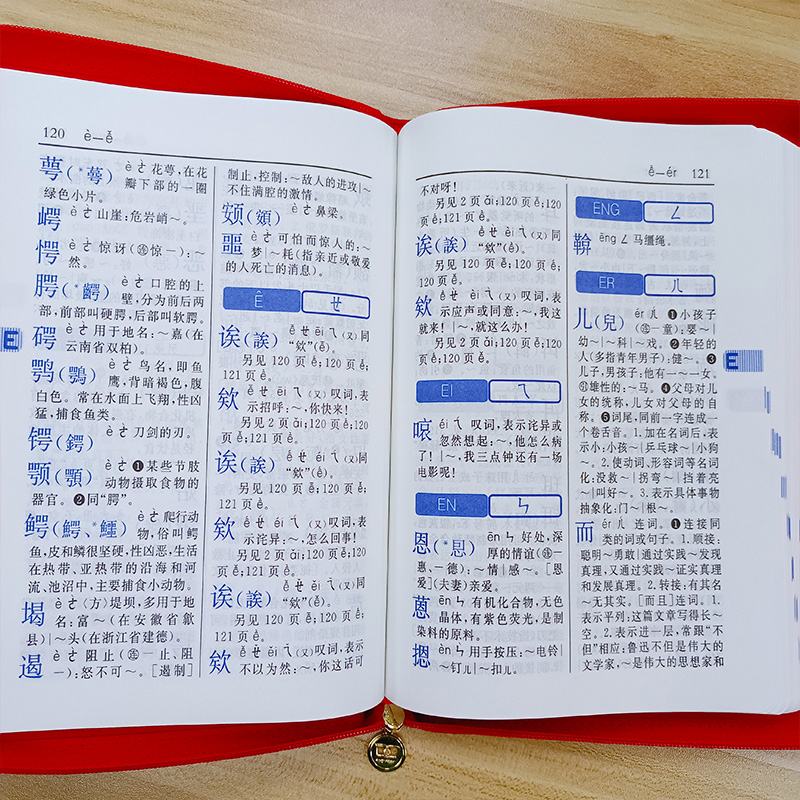 120 è—ê̌
萼(*蕚) è ㄜ 花萼,在花
瓣下部的一圈
绿色小片。
崿 è ㄜ 山崖:危岩峭~。
愕 è ㄜ 惊讶(㊥惊—):~
然。
腭(*齶) è ㄜ 口腔的上
壁,分为前后两
部,前部叫硬腭,后部叫软腭。
碍 è ㄜ 用于地名:~嘉(在
云南省双柏)。
鹗(鶚) è ㄜ 鸟名,即鱼
鹰,背暗褐色,腹
白色。常在水面上飞翔,性凶
猛,捕食鱼类。
锷(鍔) è ㄜ 刀剑的刃。
颚(顎) è ㄜ ❶某些节肢
动物摄取食物的
器官。❷同“腭”。
鳄(鰐、*鱷) è ㄜ 爬行动
物,俗叫鳄
鱼,皮和鳞很坚硬,性凶恶,生活
在热带、亚热带的沿海和河
流、池沼中,主要捕食小动物。
堨 è ㄜ (方)堤坝,多用于地
名:富~(在安徽省歙
县)|~头(在浙江省建德)。
遏 è ㄜ 阻止(㊥—止、阻
—):怒不可~。[遏制]
制止,控制:~敌人的进攻|~
不住满腔的激情。
頞(頞) è ㄜ 鼻梁。
噩 è ㄜ 可怕而惊人的:~
梦|~耗(指亲近或敬爱
的人死亡的消息)。
Ê ㄝ
诶(誒) ê̄ ㄝ ēi ㄟ (又)同
“欸”(ê̄)。
另见 120 页 ế;120 页
ê̌;121 页 ề。
欸 ê̄ ㄝ ēi ㄟ (又)叹词,表
示招呼:~,你快来!
另见 2 页 ǎi;120 页 ế;
120 页 ê̌;121 页 ề。
诶(誒) ế ㄝ éi ㄟ (又)同
“欸”(ế)。
另见 120 页 ê̄;120 页 ê̌;
121 页 ề。
欸 ế ㄝ éi ㄟ (又)叹词,表
示诧异:~,怎么回事!
另见 2 页 ǎi;120 页 ê̄;
120 页 ê̌;121 页 ề。
诶(誒) ê̌ ㄝ ěi ㄟ (又)同
“欸”(ê̌)。
另见 120 页 ê̄;120 页 ế;
121 页 ề。
欸 ê̌ ㄝ ěi ㄟ (又)叹词,表示
不以为然:~,你这话可
E
ê̌—ér 121
不对呀!
另见 2 页 ǎi;120 页 ê̄;
120 页 ế;121 页 ề。
诶(誒) ề ㄝ èi ㄟ (又)同
“欸”(ề)。
另见 120 页 ê̄;120 页 ế;
120 页 ê̌。
欸 ề ㄝ èi ㄟ (又)叹词,表
示应声或同意:~,我这
就来!|~,就这么办!
另见 2 页 ǎi;120 页 ê̄;
120 页 ế;120 页 ê̌。
EI ㄟ
𠲖 éi ㄟ 叹词,表示诧异或
忽然想起:~,他怎么病
了!|~,我三点钟还有一场
电影呢!
EN ㄣ
恩(*㤙) ēn ㄣ 好处,深
厚的情谊(㊥—
惠、—德):~情|感~。[恩
爱](夫妻)亲爱。
蒽 ēn ㄣ 有机化合物,无色
晶体,有紫色荧光,是制
染料的原料。
摁 èn ㄣ 用手按压:~电铃
|~钉儿|~扣儿。
ENG ㄥ
鞥 ēng ㄥ 马缰绳。
ER ㄦ
儿(兒) ér ㄦ ❶小孩子
(㊥—童):婴~|
幼~|~科|~戏。❷年轻的
人(多指青年男子):健~。❸
儿子,男孩子:他有一~一女。
㊣雄性的:~马。❹父母对儿
女的统称,儿女对父母的自
称。❺词尾,同前一字连成一
个卷舌音。1.加在名词后,表
示小:小孩~|乒乓球~|小狗
~。2.使动词、形容词等名词
化:没救~|拐弯~|挡着亮
~|叫好~。3.表示具体事物
抽象化:门~|根~。
而 ér ㄦ 连词。❶连接同
类的词或句子。1.顺接:
聪明~勇敢|通过实践~发现
真理,又通过实践~证实真理
和发展真理。2.转接:有其名
~无其实。[而且]连词。1.
表示平列:这篇文章写得长~
空。2.表示进一层,常跟“不
但”相应:鲁迅不但是伟大的
文学家,~是伟大的思想家和
E